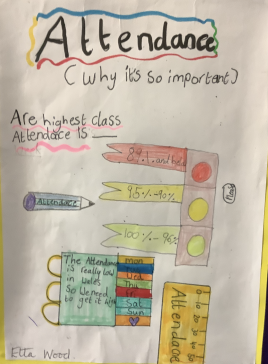 Attendance
(why it's so important)
Are highest class
Attendance is
89%
95%-90%
100%-96%
Attendance
The Attendance
is really low
in Wales
So we need
to get it
mon
Wed
Thu
Fri
Sat
Sun
Attendance
0 10 20 30
Etta Wood